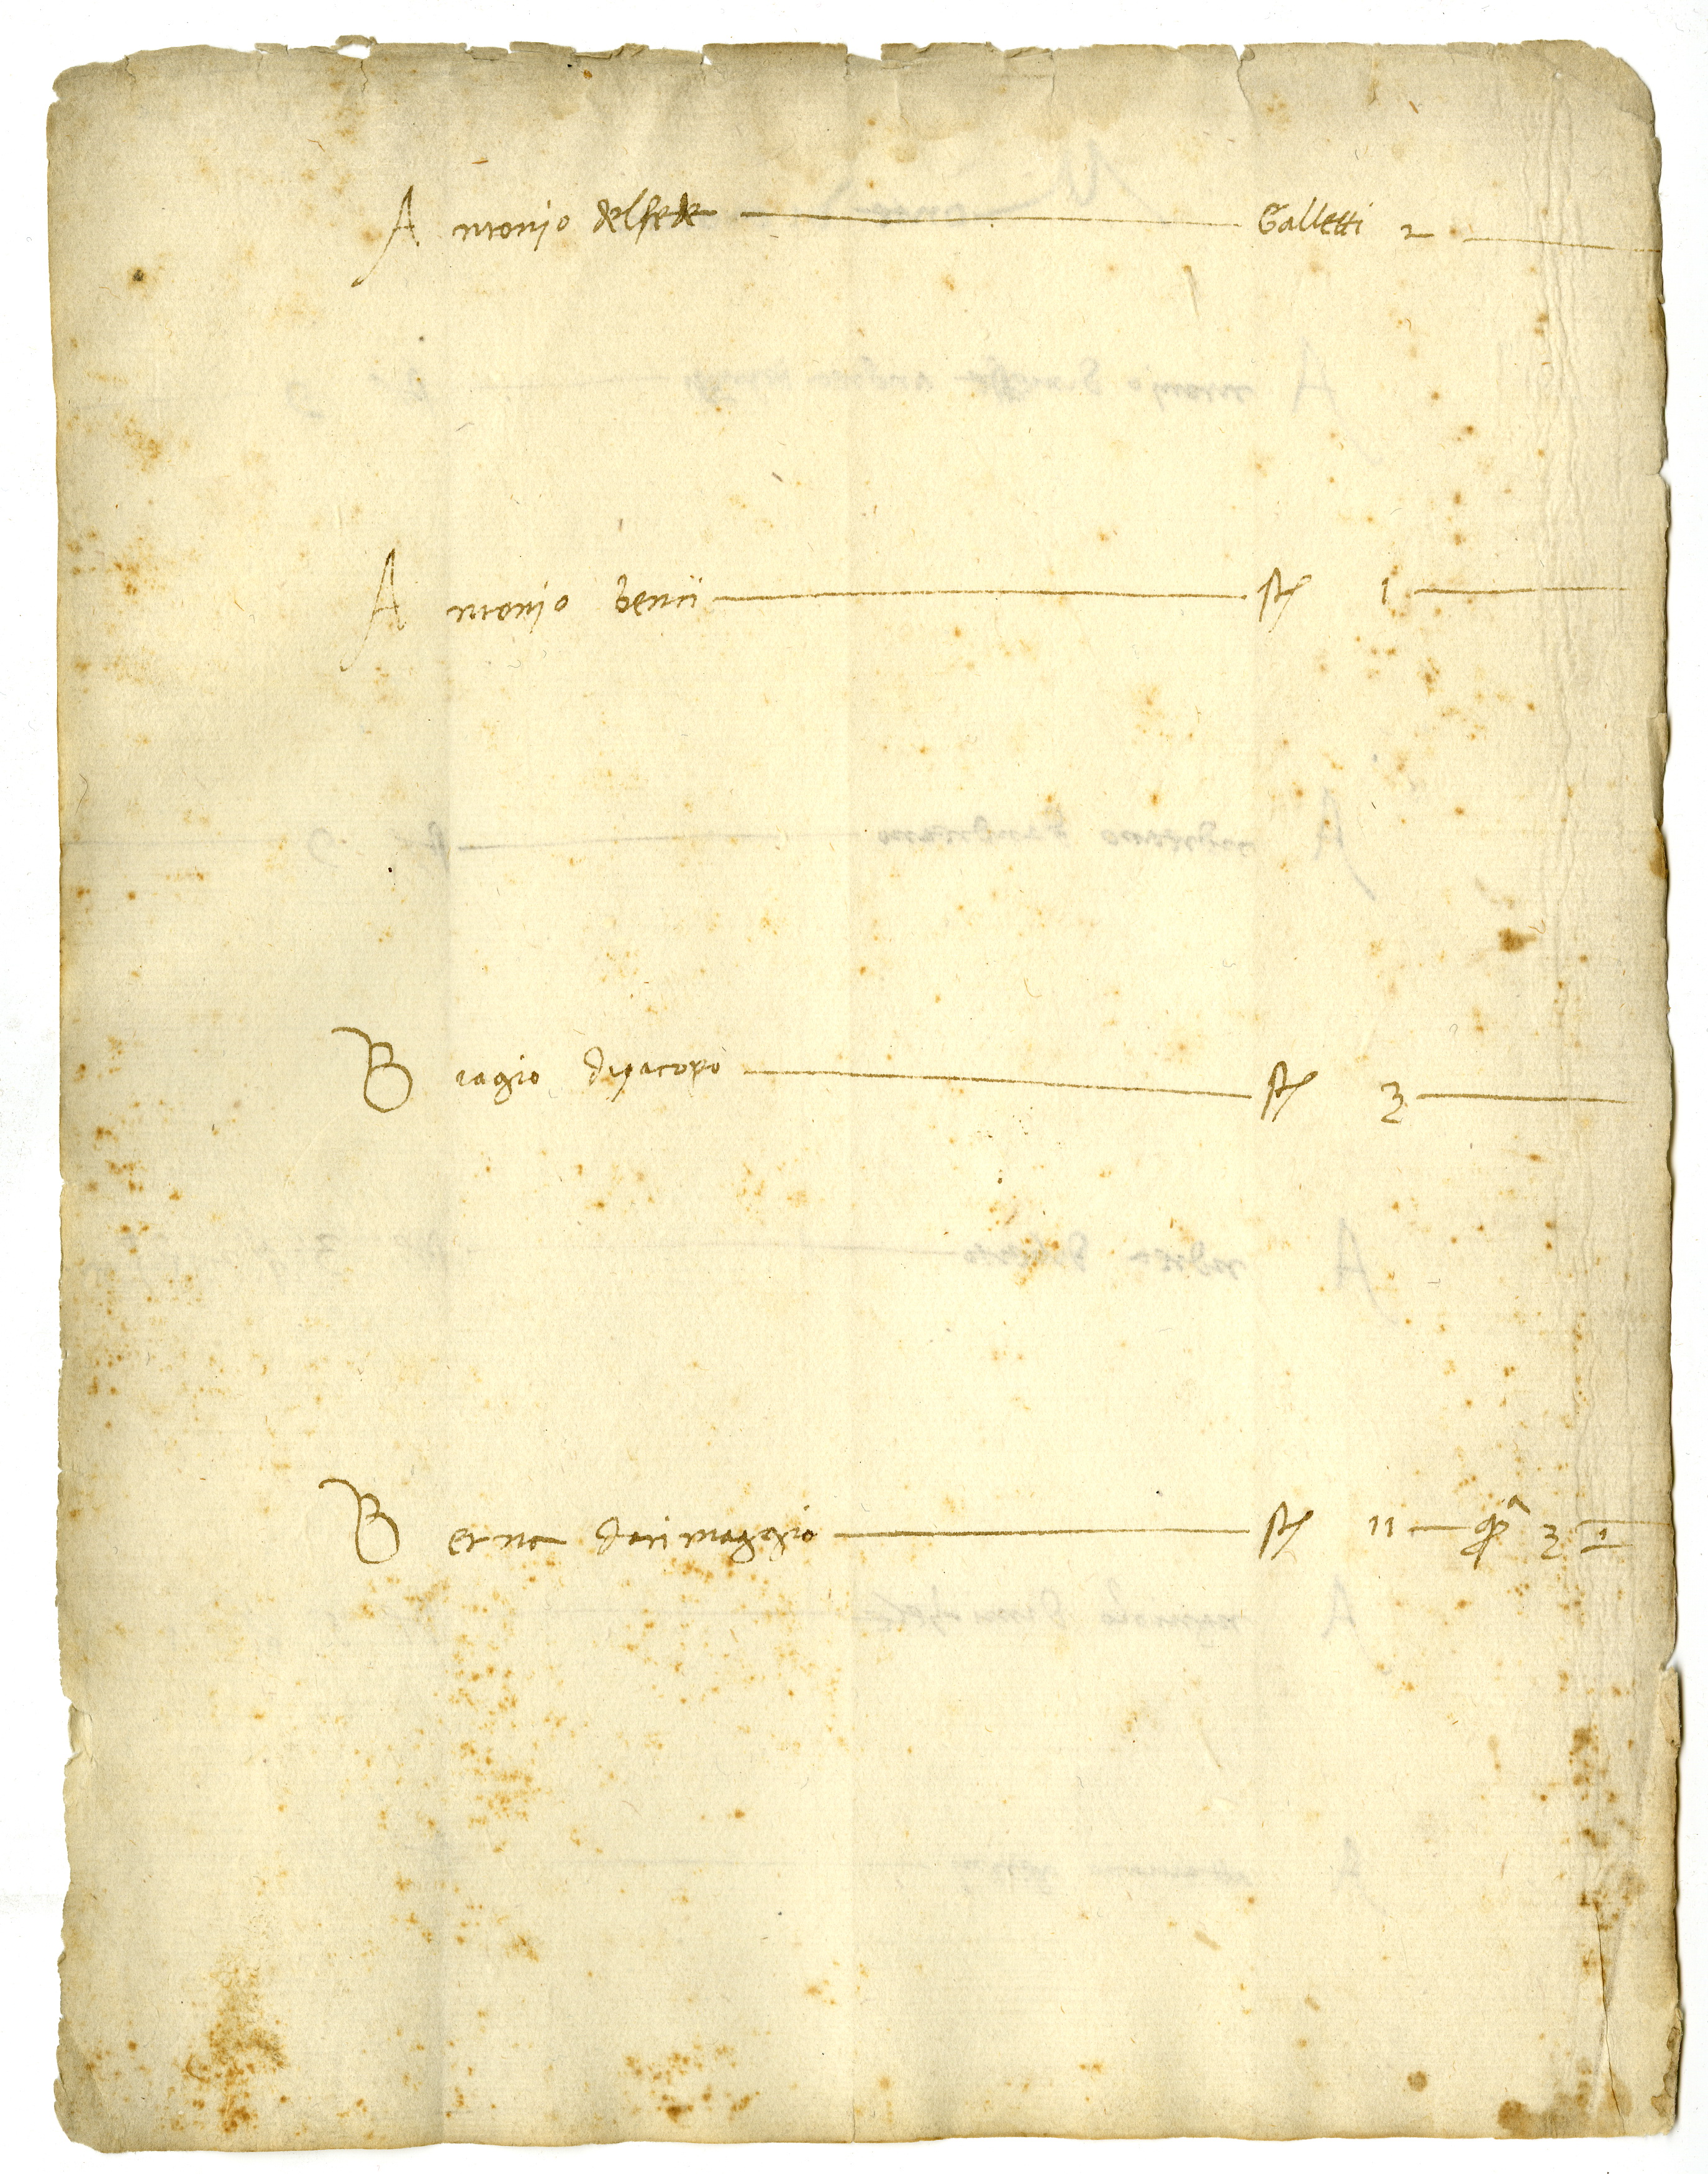 Antonio del fede Galletti 2
Antonio benci st 1
Biagio dijacopo st 3
Berna darimaggio st 11 qra 3 1